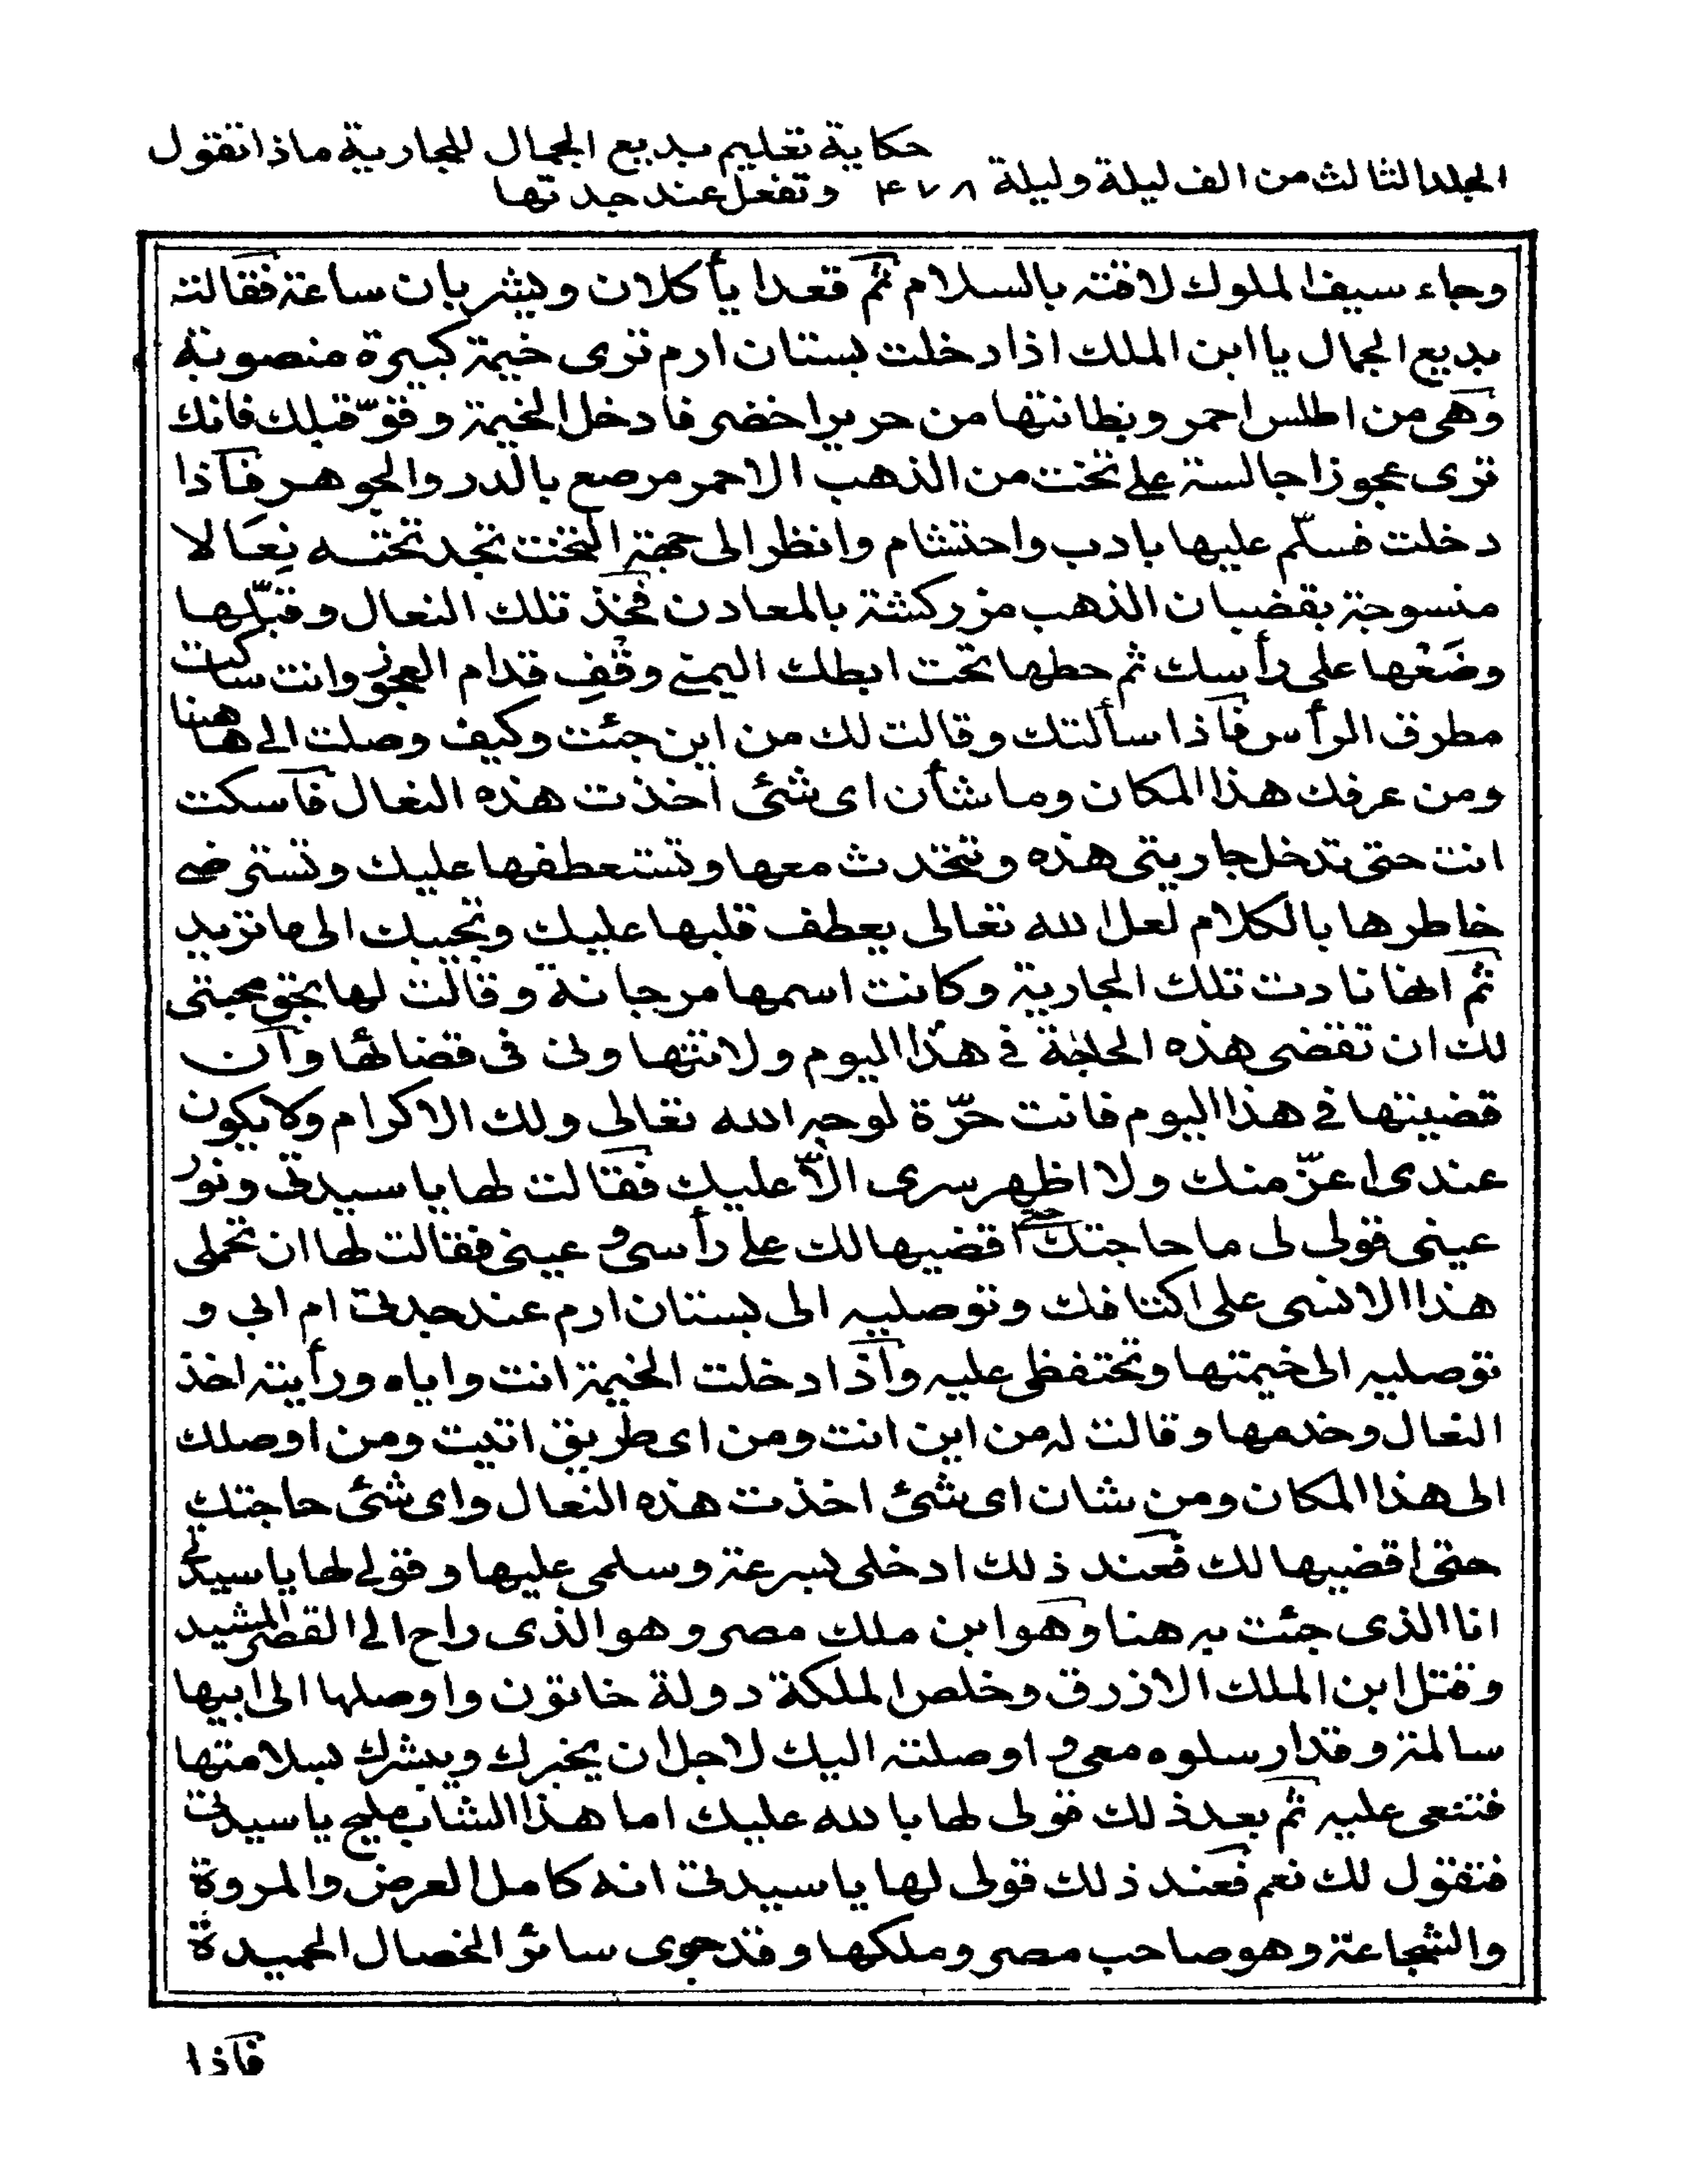 المجلد الثالث من الف ليلة وليلة ۴۷۸ حكاية تعليم بديع الجمال للجارية ماذا تقول
وتفعل عند جدتها
وجاء سيف الملوك لاقته بالسلام ثم قعدا يأكلان ويشربان ساعة فقالت
بديع الجمال يا ابن الملك اذا دخلت بستان ارم ترى خيمة كبيرة منصوبة
وهى من اطلس احمر وبطانتها من حرير اخضر فادخل الخيمة وقوّ قبلك فانك
ترى عجوزا جالسة على تخت من الذهب الاحمر مرصع بالدر والجوهر فاذا
دخلت فسلّم عليها بادب واحتشام وانظر الى جهة التخت تجد تحته نِعَالا
منسوجة بقضبان الذهب مزركشة بالمعادن فخذ تلك النعال وقبّلها
وضَعْها على رأسك ثم حطها تحت ابطك اليمنى وقُفِ قدام العجوز وانت ساكت
مطرق الرأس فاذا سألتك وقالت لك من اين جئت وكيف وصلت الى هاهنا
ومن عرفك هذا المكان وما شأن اى شئى اخذت هذه النعال فاسكت
انت حتى تدخل جاريتى هذه وتتحدث معها وتستعطفها عليك وتسترضى
خاطرها بالكلام لعل الله تعالى يعطف قلبها عليك وتجيبك الى ما تريد
ثم انها نادت تلك الجارية وكانت اسمها مرجانة وقالت لها بحق محبتى
لك ان تقضى هذه الحاجة فى هذا اليوم ولا تتهاونى فى قضائها وان
قضيتها فى هذا اليوم فانت حرّة لوجه الله تعالى ولك الاكرام ولا يكون
عندى اعزّ منك ولا اظهر سرى الّا عليك فقالت لها يا سيدتى ونور
عينى قولى لى ما حاجتك حتى اقضيها لك على رأسى وعينى فقالت لها ان تحملى
هذا الانسى على اكتافك وتوصليه الى بستان ارم عند جدتى ام ابى و
توصليه الى خيمتها وتحتفظى عليه واذا دخلت الخيمة انت واياه ورأيته اخذ
النعال وخدمها وقالت له من اين انت ومن اى طريق اتيت ومن اوصلك
الى هذا المكان ومن شان اى شئ اخذت هذه النعال واى شئى حاجتك
حتى اقضيها لك فعند ذلك ادخلى بسرعة وسلمى عليها وقولى لها يا سيدتى
انا الذى جئت به هنا وهو ابن ملك مصر وهو الذى راح الى القصر المشيد
وقتل ابن الملك الازرق وخلص الملكة دولة خاتون واوصلها الى ابيها
سالمة وقد ارسلوه معى واوصلته اليك لاجل ان يخبرك ويبشرك بسلامتها
فتنعمى عليه ثم بعد ذلك قولى لها بالله عليك اما هذا الشاب مليح يا سيدتى
فتقول لك نعم فعند ذلك قولى لها يا سيدتى انه كامل العرض والمروة
والشجاعة وهو صاحب مصر وملكها وقد حوى سائر الخصال الحميدة
فاذا